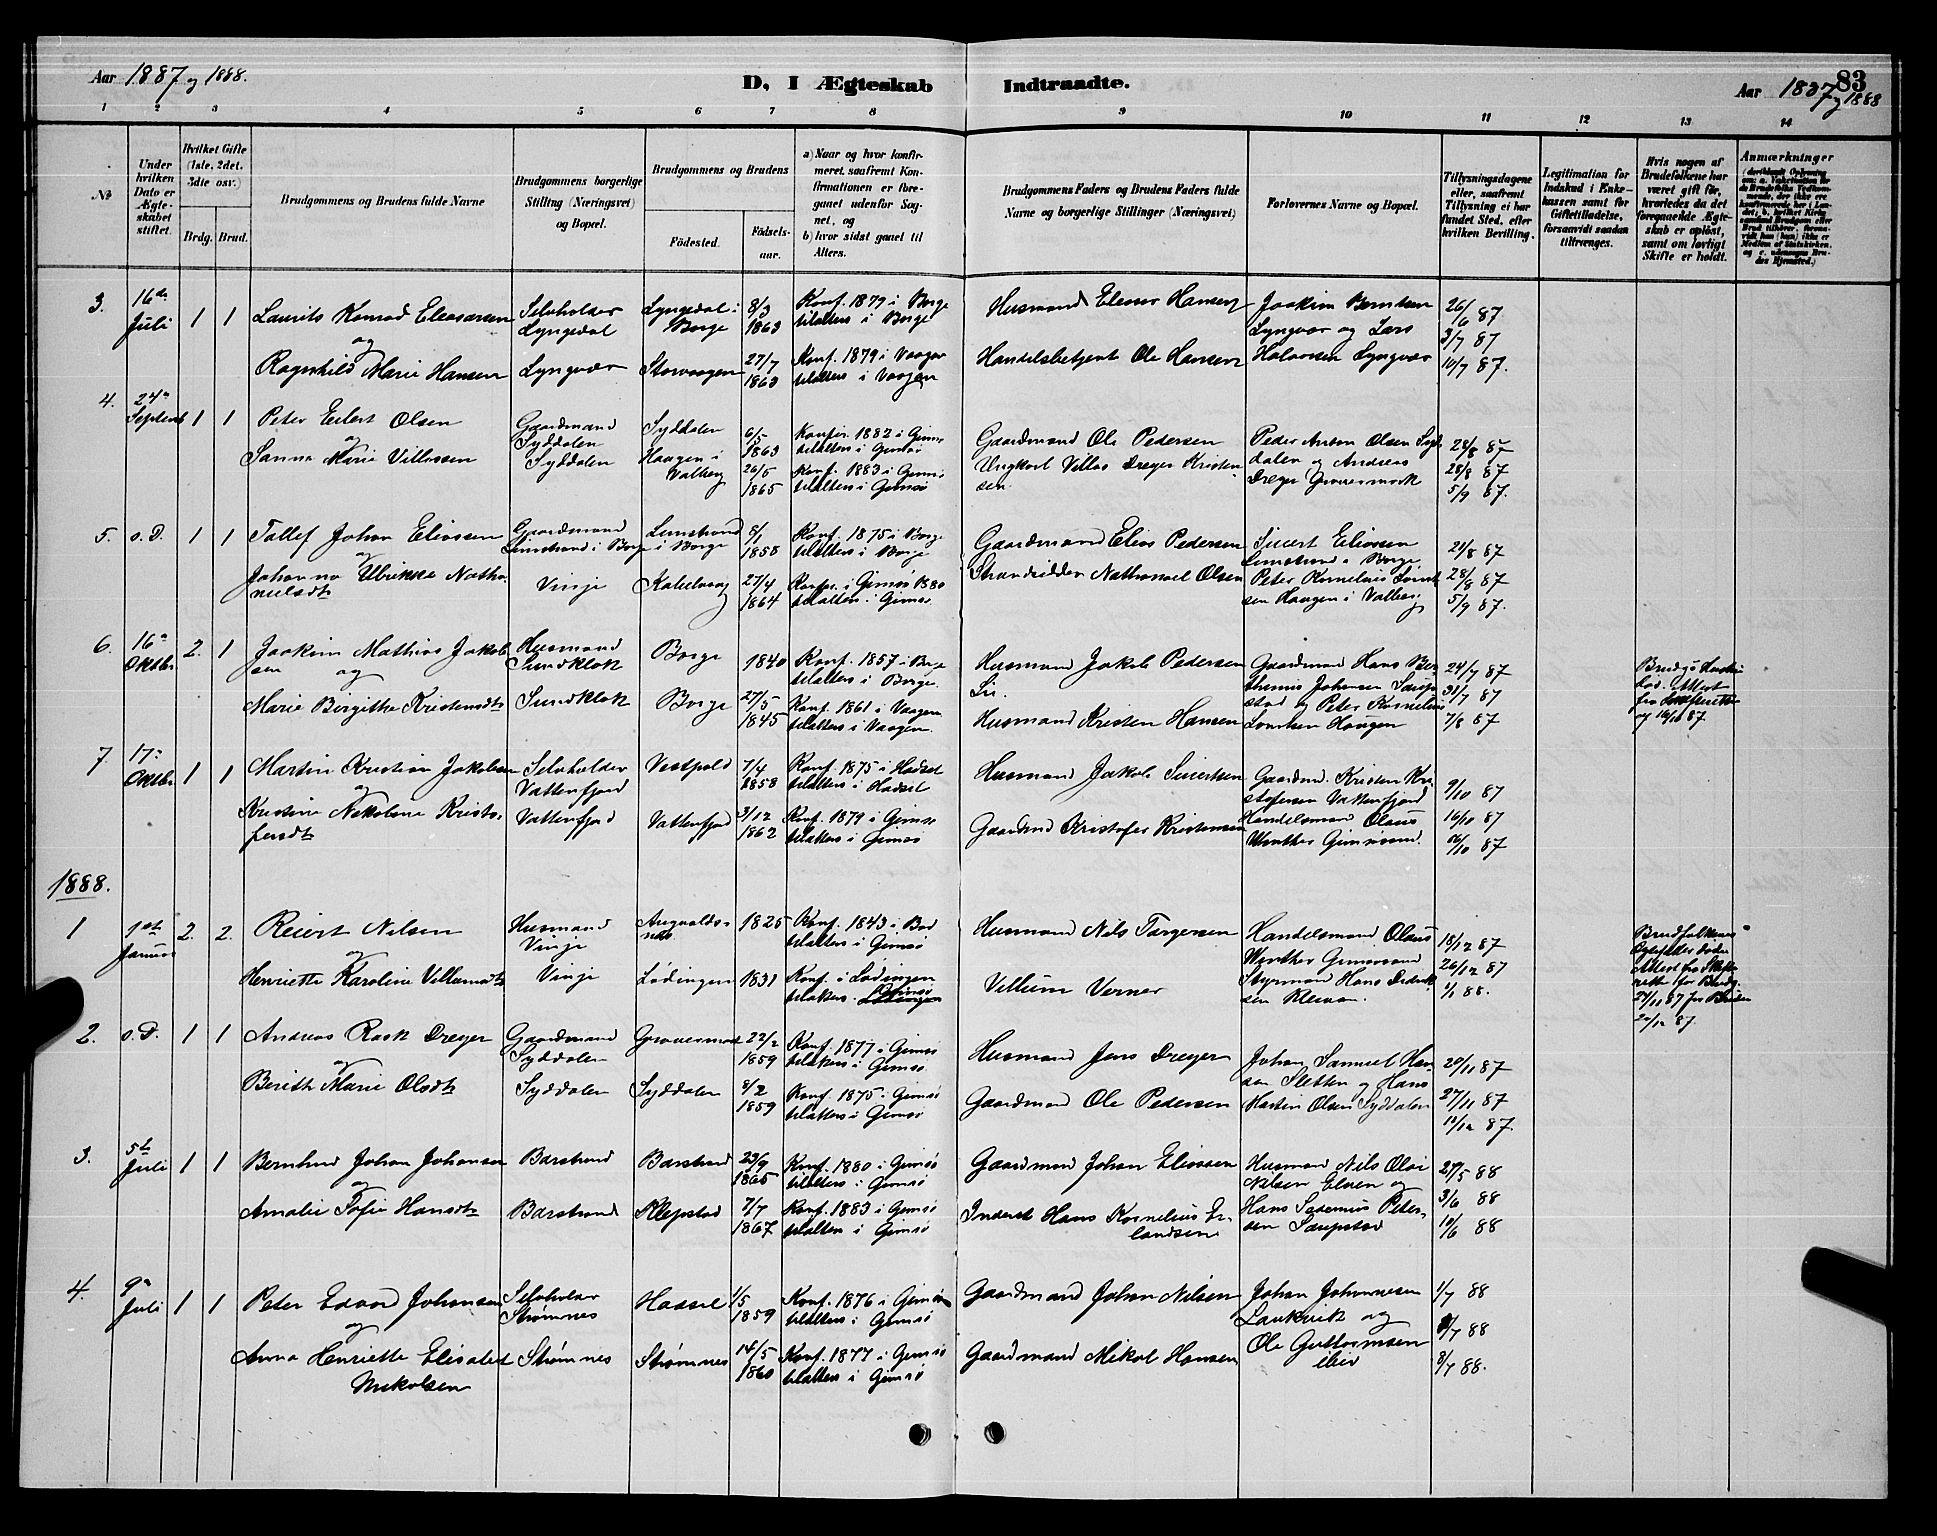 Aar 1887 og 1888.
D, I Ægteskab Indtraadte.
Aar 1887 og 1888
83
1 2 3 4 5 6 7 8 9 10 11 12 13 14
No
Under hvilken Dato er Ægteskabet stiftet.
Hvilket Gifte (1ste, 2det, 3die osv.)
Brdg. Brud.
Brudgommens og Brudens fulde Navne
Brudgommens borgerlige Stilling (Næringsvei) og Bopæl.
Brudgommens og Brudens
Fødested.
Fødselsaar.
a) Naar og hvor konfirmeret, saafremt Konfirmationen er foregaaet udenfor Sognet, og
b) hvor sidst gaaet til Alters.
Brudgommens Faders og Brudens Faders fulde Navne og borgerlige Stillinger (Næringsvei)
Forlovernes Navne og Bopæl.
Tillysningsdagene eller, saafremt Tillysning ei har fundet Sted, efter hvilken Bevilling.
Legitimation for Indskud i Enkekassen samt for Giftetilladelse, forsaavidt saadan tiltrænges.
Hvis nogen af Brudefolkene har været gift før, hvorledes da det foregaaende Ægteskab er opløst, samt om lovligt Skifte er holdt.
Anmærkninger
3. 16de Juli 1 1
Laurits Konrad Eleasersen Selvholder Lyngedal Lyngedal i Borge 8/3 1863 Konf. 1879 i Borge tilalters i Borge Husmand Eleser Hansen Joakim Berntsen Lyngvær og Lars 26/6 87 3/7 87
og
Ragnhild Marie Hansen Lyngvær Storvaagen 27/7 1863 Konf. 1879 i Vaagan tilalters i Vaagan Handelsbetjent Ole Hansen Halvorsen Lyngvær 10/7 87.
4. 24de Septemb 1 1
Peter Eilert Olsen Gaardmand Syddalen Syddalen 6/5 1863 Konfir. 1882 i Gimsø tilalters i Gimsø Gaardmand Ole Pedersen Peder Anton Olsen Syddalen og Andreas 21/8 87
og
Sanna Marie Villassen Syddalen Haugen i Valberg 26/5 1865 Konf. 1883 i Gimsø tilalters i Gimsø Ungkarl Villas Dreyer Kristensen Dreyer Gravermark 28/8 87 5/9 87.
5. s. D. 1 1
Tollef Johan Eliassen Gaardmand Limstrand i Borge Limstrand i Borge 8/1 1858 Konf. 1875 i Borge tilalters i Borge Gaardmand Elias Pedersen Sivert Eliassen Limstrand i Borge 21/8 87
og
Johanna Ulrikke Nathanielsdt Vinje Kalvaag 27/4 1864 Konfir. i Gimsø 1880 tilalters i Gimsø Strandsidder Nathanael Olsen Peter Kornelius Haugen i Valberg 28/8 87 5/9 87.
6. 16de Oktbr. 2. 1
Joakim Mathias Jakobsen Husmand Sundklak Borge 1840 Konf. 1857 i Borge tilalters i Borge. Husmand Jakob Pedersen Li. Gaardmand Hans Johansen Saupstad og Peter Kornelius 24/7 87 31/7 87
og
Marie Birgithe Kristensdt Sundklak Borge 27/5 1845 Konf. 1861 i Vaagan tilalters i Vaagan. Husmand Kristen Hansen Haugen 7/8 87
Brudgs Hustru død. Attest fra Skifteretten af 16/10 87
7. 17de Oktbr. 1 1
Martin Kristian Jakobsen Selvholder Vattenfjord Vestpold 7/4 1858 Konf. 1875 i Hadsel tilalters i Hadsel Husmand Jakob Sivertsen Gaardmd. Kristen Kristofersen Vattenfjord 9/10 87
og
Kristine Nekoline Kristofersdt Vattenfjord Vattenfjord 3/12 1862 Konf. 1879 i Gimsø tilalters i Gimsø Gaardmd Kristofer Kristensen Handelsmand Olaus Winther Gimsøsand. 16/10 87
1888.
1 1st Januar 2. 2.
Reiert Nilsen Husmand Vinje Augvaldsnes 1825 Konf. 1843 i Bud tilalters i Gimsø Husmand Nils Torgersen Handelsmand Olaus Winther Gimsøsand 18/12 87 26/12 87
og
Henriette Karoline Villumsdt Vinje Lødingen 1831 Konf. i Lødingen tilalters i Gimsø Villum Verner Styrmand Hans Didriksen Kleivan. 1/1 88.
Brudfolkenes Egtefæller døde Attest fra Skifteretten for Brudg. 27/11 87 for Bruden 22/12 87.
2. s. D. 1 1
Andreas Rask Dreyer Gaardmand Syddalen Gravermark 22/2 1859 Konf. 1877 i Gimsø tilalters i Gimsø Husmand Jens Dreyer Johan Samuel Hansen Sletten og Hans 20/11 87
og
Berith Marie Olsdt Syddalen Syddalen 8/2 1859 Konf. 1875 i Gimsø tilalters i Gimsø Gaardmand Ole Pedersen Martin Olsen Syddalen 27/11 87 11/12 87.
3. 5te Juli 1 1
Bernhard Johan Johansen Barstrand Barstrand 29/9 1865 Konf. 1880 i Gimsø tilalters i Gimsø Gaardmand Johan Eliassen Husmand Nils Olai Nilsen og 27/5 88
og
Amalie Sofie Hansdt Barstrand Klepstad 7/7 1867 Konf. 1883 i Gimsø tilalters i Gimsø Inderst Hans Kornelius Erlandsen Hans Severinus Petersen Saupstad 3/6 88 10/6 88
4. 9de Juli 1 1
Peter Edvard Johansen Selvholder Strømnes Hadsel 1/5 1859 Konf. 1876 i Gimsø tilalters i Gimsø Gaardmand Johan Nilsen Johan Johannesen Laukvik og 1/7 88
og
Anna Henriette Elisabet Mikolsen Strømnes Strømnes 14/5 1860 Konf. 1877 i Gimsø tilalters i Gimsø Gaardmand Mikal Hansen Ole Guttormsen ibid 8/7 88 8/7 88.